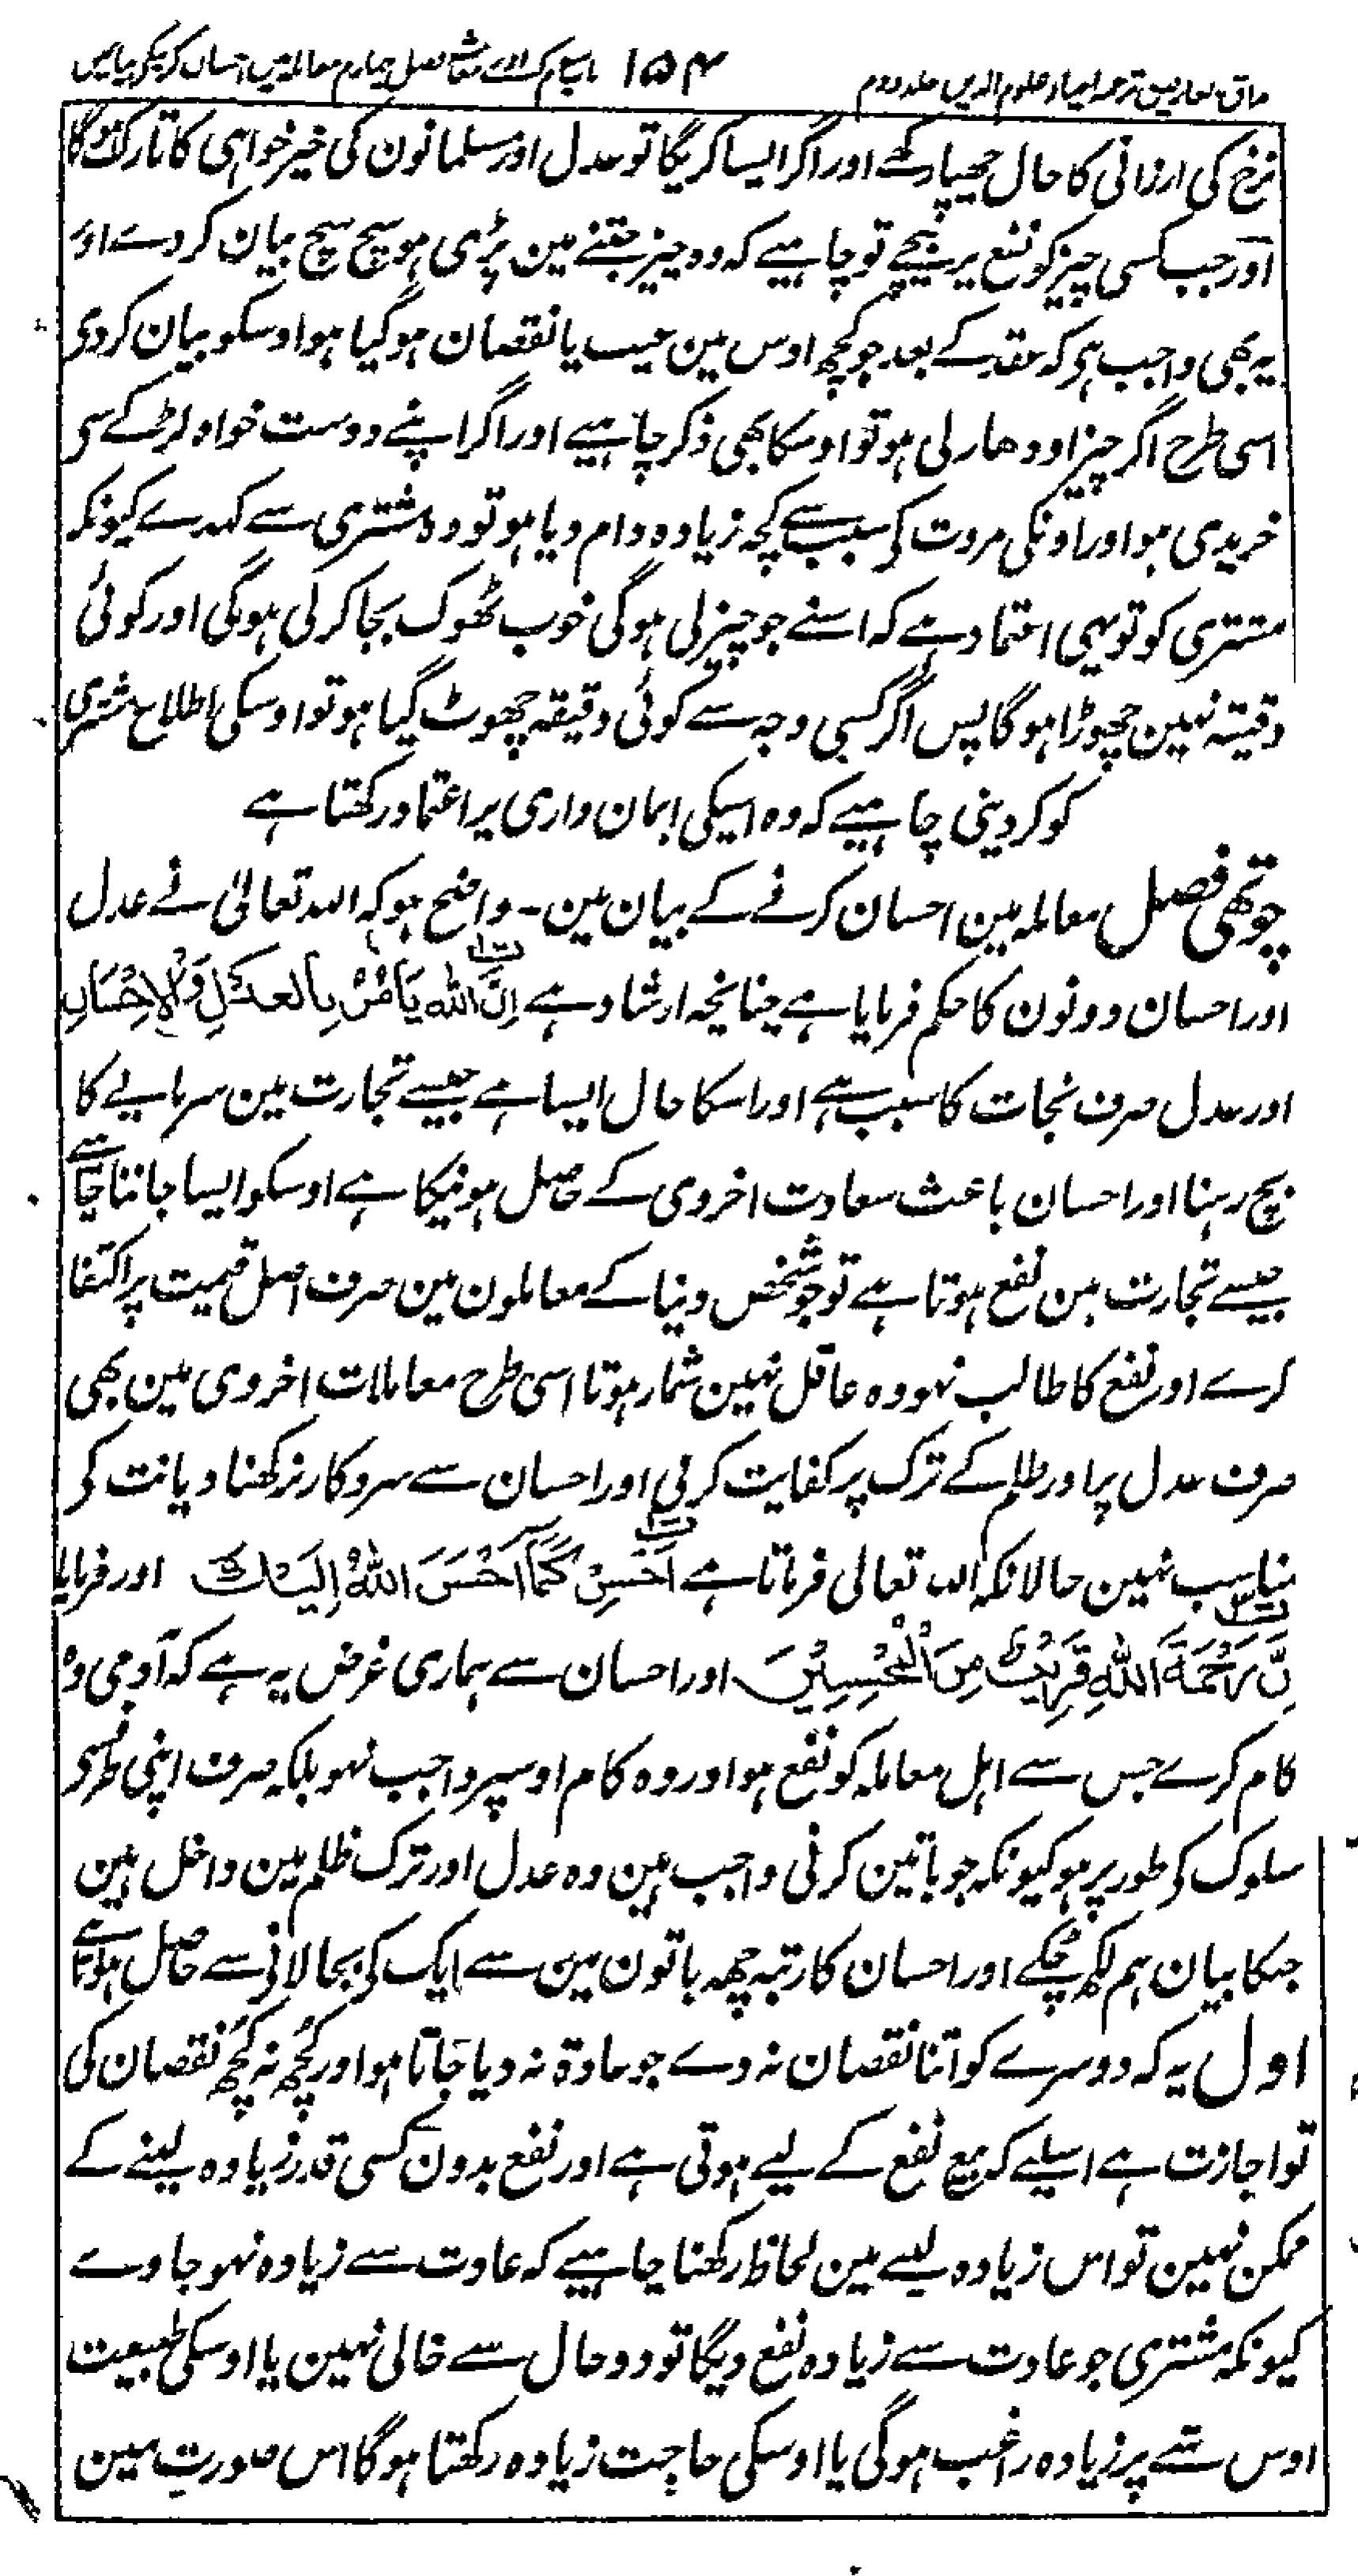 مذاق العارفین ترجمہ احیاء علوم الدین جلد دوم ۱۵۴ فصل چہارم معاملہ میں احسان کرنیکے بیان میں
نرخ کی ارزانی کا حال چھپا رکھے اور اگر ایسا کریگا تو عدل اور مسلمانون کی خیر خواہی کا تارک ہوگا
اور جب کسی چیز کو نفع پر بیچے تو چاہیے کہ وہ چیز جتنے مین پڑی ہو سچ سچ بیان کر دے اور
یہ بھی واجب ہی کہ عقد کے بعد جو کچھ اوس مین عیب یا نقصان ہو گیا ہو اوسکو بیان کر دی
اسی طرح اگر چیز اودھار لی ہو تو اوسکا بھی ذکر چاہیے اور اگر اپنے دوست خواہ لڑکے سی
خریدی ہو اور اونکی مروت کی سبب سے کچھ زیادہ دام دیا ہو تو وہ مشتری سے کہدے کیونکہ
مشتری کو تو یہی اعتماد ہے کہ اسنے جو چیز لی ہوگی خوب ٹھوک بجا کر لی ہوگی اور کوئی
دقیقہ نہین چھوڑا ہوگا پس اگر کسی وجہ سے کوئی دقیقہ چھوٹ گیا ہو تو اوسکی اطلاع مشتری
کو کر دینی چاہیے کہ وہ اسیکی ایمان داری پر اعتماد رکھتا ہے
چوتھی فصل معاملہ مین احسان کرنے کے بیان مین۔ واضح ہو کہ اللہ تعالیٰ نے عدل
اور احسان دونون کا حکم فرمایا ہے چنانچہ ارشاد ہے اِنَّ اللّٰهَ يَأْمُرُ بِالْعَدْلِ وَالْاِحْسَانِ
اور عدل صرف نجات کا سبب ہے اور اسکا حال ایسا ہے جیسے تجارت مین سرمایے کا
بچ رہنا اور احسان باعث سعادت اخروی کے حاصل ہونیکا ہے اوسکو ایسا جاننا چاہیے
جیسے تجارت مین نفع ہوتا ہے تو جو شخص دنیا کے معاملون مین صرف اصل قیمت پر اکتفا
کرے اور نفع کا طالب نہو وہ عاقل نہین شمار ہوتا اسی طرح معاملات اخروی مین بھی
صرف عدل پر اور ظلم کے ترک پر کفایت کرنی اور احسان سے سروکار نرکھنا دیانت کی
مناسب نہین حالانکہ اللہ تعالی فرماتا ہے اَحْسِنْ كَمَا اَحْسَنَ اللّٰهُ اِلَيْكَ اور فرمایا
اِنَّ رَحْمَةَ اللّٰهِ قَرِيْبٌ مِنَ الْمُحْسِنِيْنَ اور احسان سے ہماری غرض یہ ہے کہ آدمی وہ
کام کرے جس سے اہل معاملہ کو نفع ہو اور وہ کام اوسپر واجب نہو بلکہ صرف اپنی طرف سی
سلوک کی طور پر ہو کیونکہ جو باتین کرنی واجب ہین وہ عدل اور ترک ظلم مین داخل ہین
جنکا بیان ہم لکھ چکے اور احسان کا رتبہ چھ باتون مین سے ایک کی بجا لانی سے حاصل ہوتا ہے
اول یہ کہ دوسرے کو اتنا نقصان نہ دے جو عادۃً نہ دیا جاتا ہو اور کچھ نہ کچھ نقصان کی
تو اجازت ہے اسلیے کہ بیع نفع کے لیے ہوتی ہے اور نفع بدون کسی قدر زیادہ لینے کے
ممکن نہین تو اس زیادہ لینے مین لحاظ رکھنا چاہیے کہ عادت سے زیادہ نہو جاوے
کیونکہ مشتری جو عادت سے زیادہ نفع دیگا تو دو حال سے خالی نہین یا اوسکی طبیعت
اوس شے پر زیادہ راغب ہوگی یا اوسکی حاجت زیادہ رکھتا ہوگا اس صورت مین